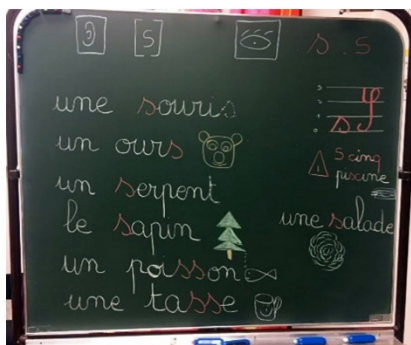 [s] s . s
une souris
un ours
un serpent
le sapin
un poisson
une tasse
s S
5 cinq
piscine
une salade